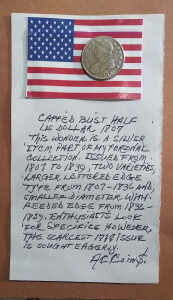 CAPPED BUST HALF
DOLLAR 1807
THIS WONDER IS A SILVER
ITEM PART OF MY PERSONAL
COLLECTION. ISSUED FROM
1807 TO 1839, TWO VARIETIES,
LARGER LETTERED EDGE
TYPE FROM 1807-1836 AND,
SMALLER DIAMETER WITH
REEDED EDGE FROM 1836-
1839. ENTHUSIASTS LOOK
FOR SPECIFIC HOWEVER,
THIS SCARCEST ISSUE
IS SOUGHT EAGERLY.